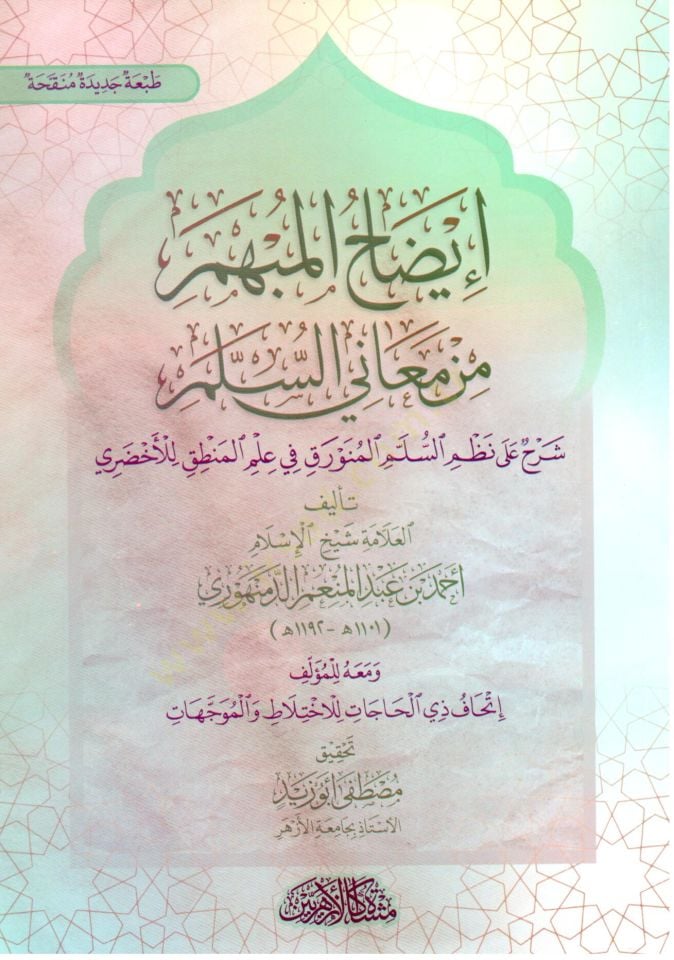 طَبْعَةٌ جَدِيدَةٌ مُنَقَّحَةٌ
إِيضَاحُ المُبْهَمِ
مِنْ مَعَانِي السُّلَّمِ
شَرْحٌ عَلَى نَظْمِ السُّلَّمِ المُنَوْرَقِ فِي عِلْمِ المَنْطِقِ لِلْأَخْضَرِي
تأليف
العَلَّامَة شَيْخ الإِسْلَام
أَحْمَدَ بْنِ عَبْدِ المُنْعِمِ الدَّمَنْهُورِي
(١١٠١هـ - ١١٩٢هـ)
وَمَعَهُ لِلْمُؤَلِّفِ
إِتْحَافُ ذِي الحَاجَاتِ لِلِاخْتِلَاطِ وَالْمُوَجَّهَاتِ
تحقيق
مُصْطَفَى أَبُو زَيْدٍ
الأستاذ بجامعة الأزهر